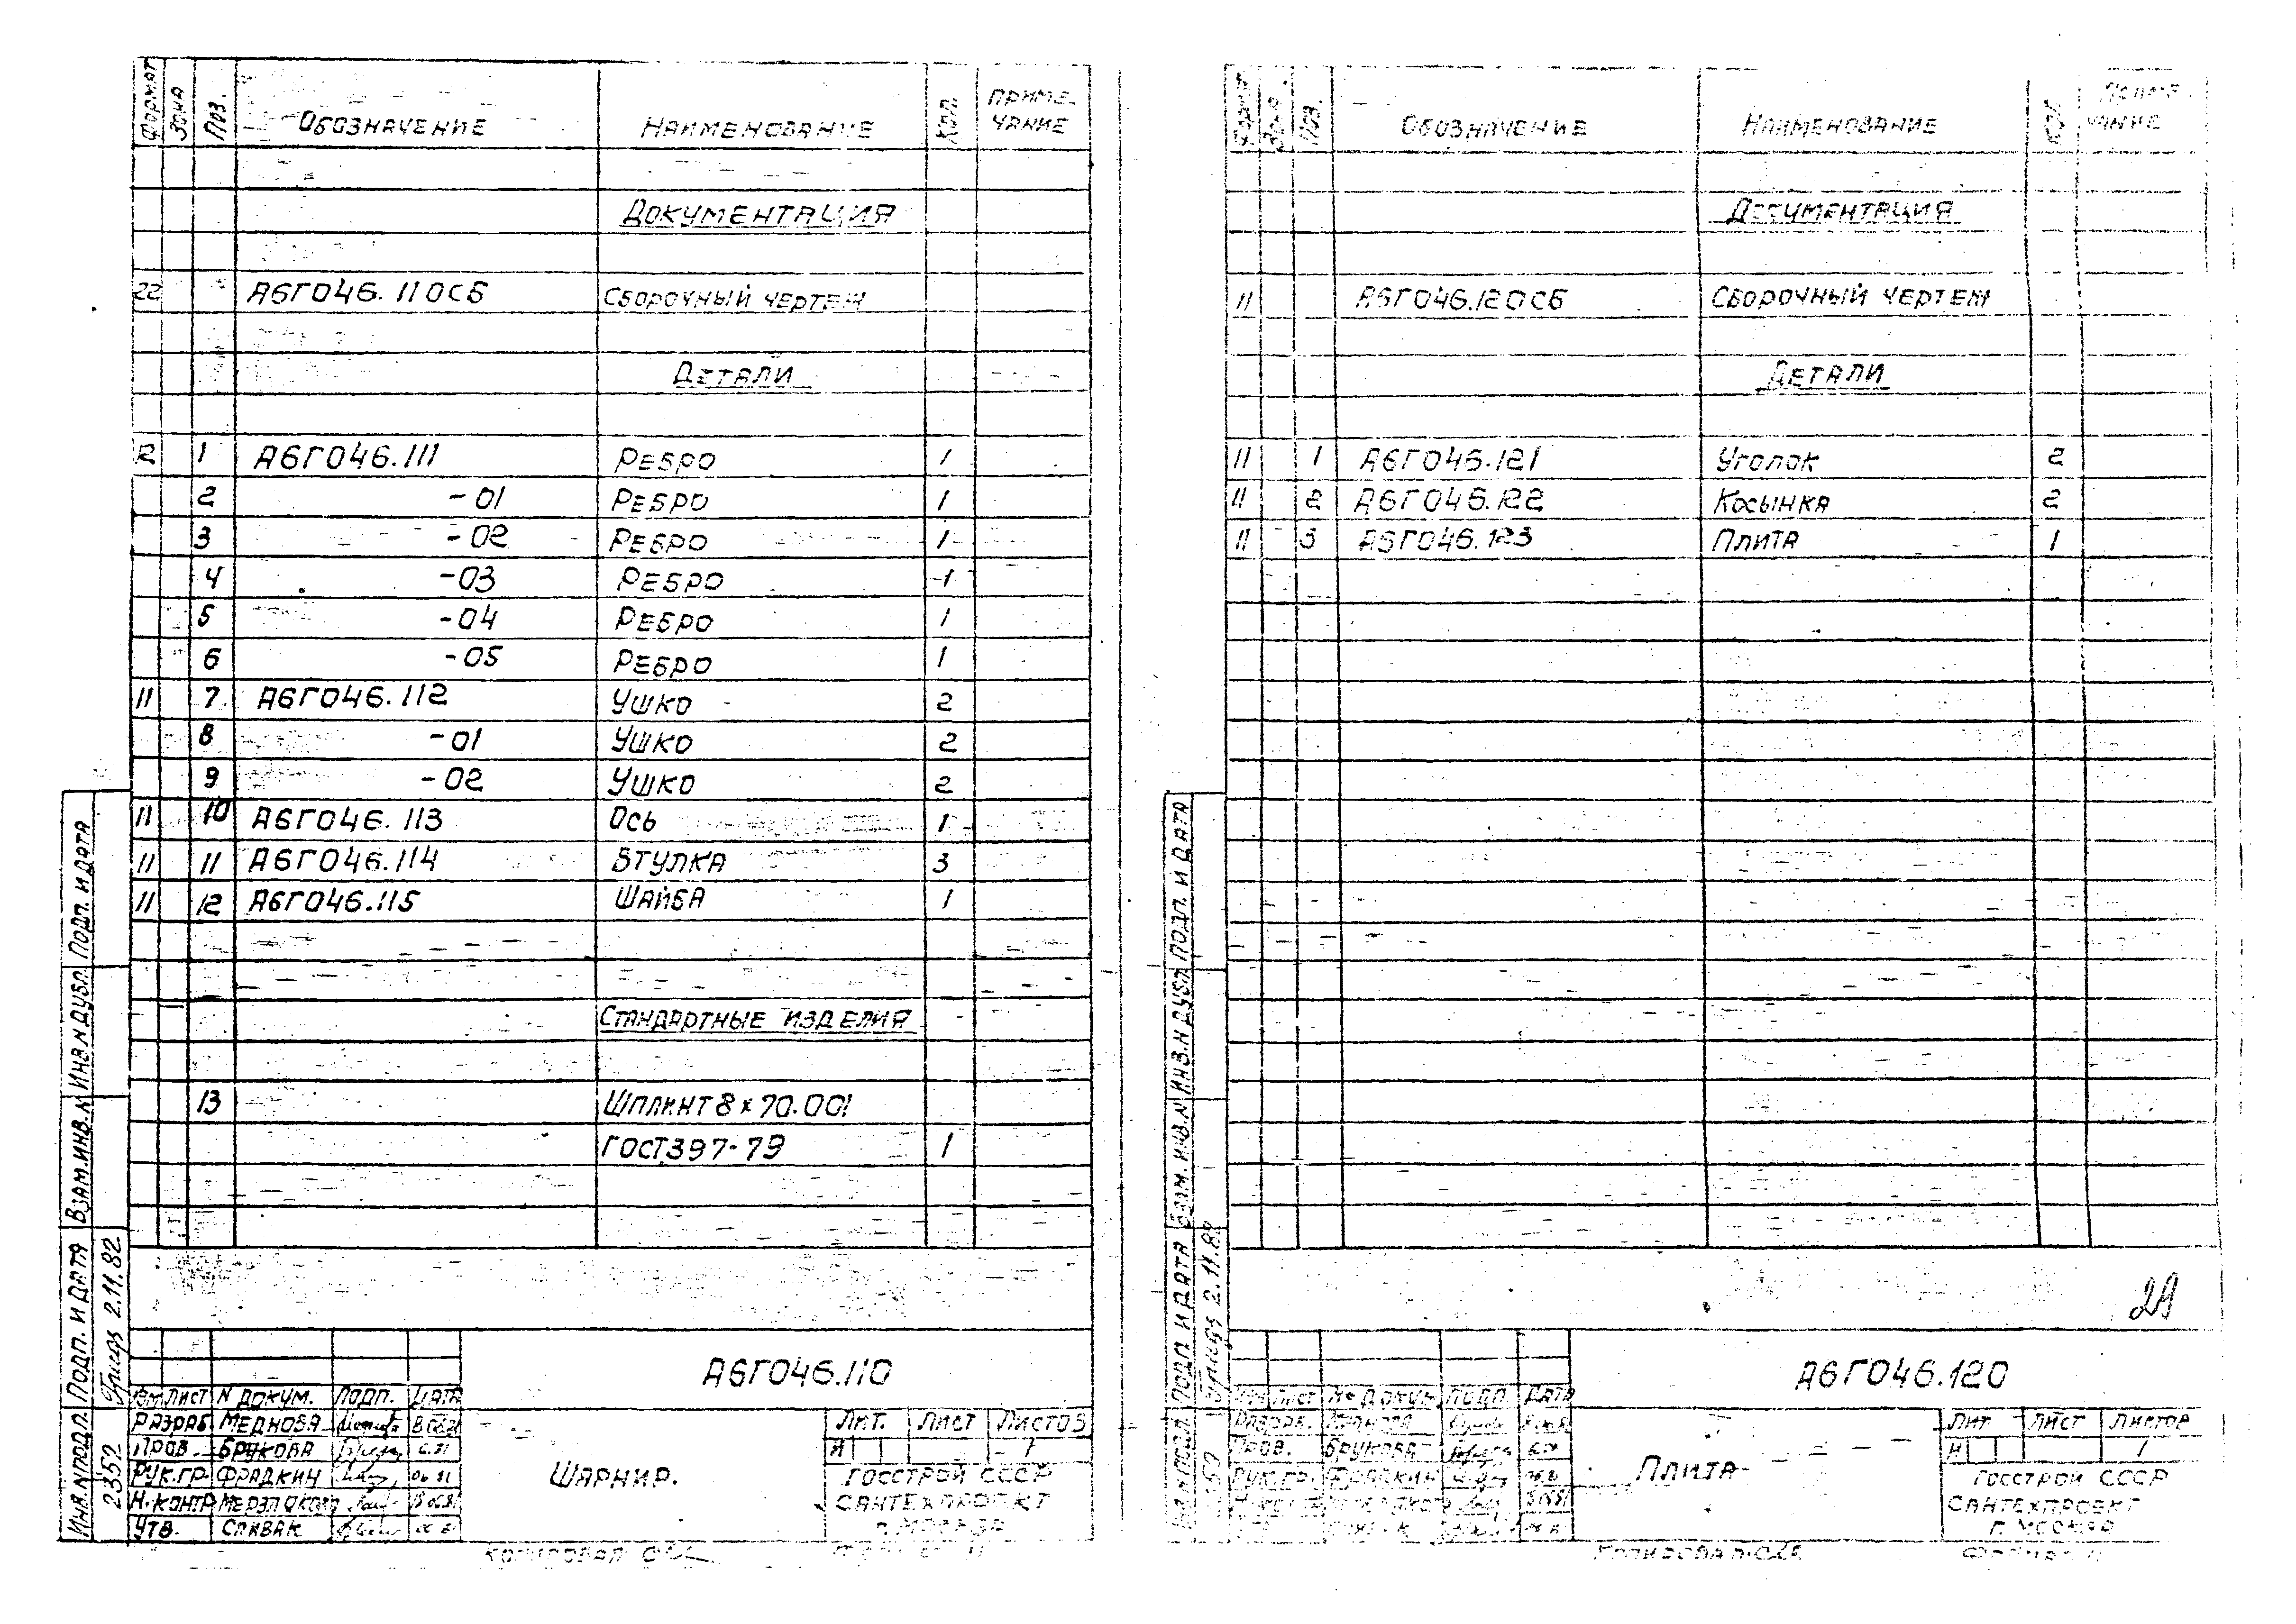 Формат Зона Поз. Обозначение Наименование Кол. Приме-
чание
Документация
22 А6Г046.110СБ Сборочный чертеж
Детали
12 1 А6Г046.111 Ребро 1
2 -01 Ребро 1
3 -02 Ребро 1
4 -03 Ребро 1
5 -04 Ребро 1
6 -05 Ребро 1
11 7 А6Г046.112 Ушко 2
8 -01 Ушко 2
9 -02 Ушко 2
11 10 А6Г046.113 Ось 1
11 11 А6Г046.114 Втулка 3
11 12 А6Г046.115 Шайба 1
Стандартные изделия
13 Шплинт 8×70.001
ГОСТ 397-79 1
Инв.N подл. Подп. и дата Взам.инв.N Инв.N дубл. Подп. и дата
2352 2.11.82
А6Г046.110
Изм. Лист N докум. Подп. Дата
Разраб. Меднова
Пров. Брукова 6.81
Рук.гр. Фрадкин 06.81
Н.контр.
Утв. Спивак
Шарнир.
Лит. Лист Листов
И 1
Госстрой СССР
Сантехпроект
г. Москва
Копировал Формат 11
Формат Зона Поз. Обозначение Наименование Кол. Приме-
чание
Документация
11 А6Г046.120СБ Сборочный чертеж
Детали
11 1 А6Г046.121 Уголок 2
11 2 А6Г046.122 Косынка 2
11 3 А6Г046.123 Плита 1
Инв.N подл. Подп. и дата Взам.инв.N Инв.N дубл. Подп. и дата
2.11.82
29
А6Г046.120
Изм. Лист № докум. Подп. Дата
Разраб.
Пров. Брукова
Рук.гр. Фрадкин
Плита
Лит. Лист Листов
И 1
Госстрой СССР
Сантехпроект
г. Москва
Копировал Формат 11